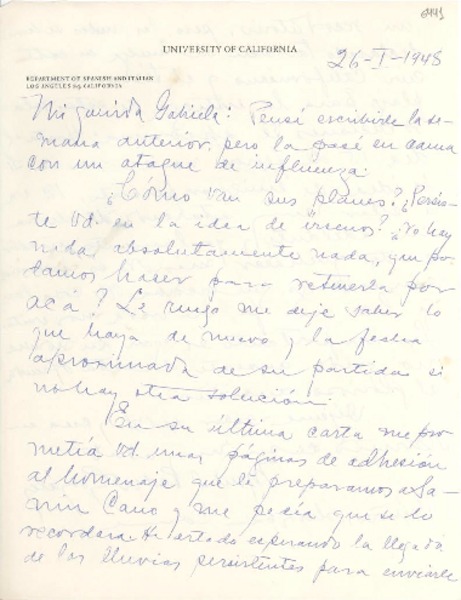 6441
UNIVERSITY OF CALIFORNIA
26-I-1948
DEPARTMENT OF SPANISH AND ITALIAN
LOS ANGELES 24, CALIFORNIA
Mi querida Gabriela: Pensé escribirle la se-
mana anterior, pero la pasé en cama
con un ataque de influenza.
¿Cómo van sus planes? ¿Persis-
te Ud. en la idea de irsenos? ¿No hay
nada, absolutamente nada, que po-
damos hacer para retenerla por
acá? Le ruego me deje saber lo
que haya de nuevo y la fecha
aproximada de su partida si
no hay otra solución.
En su última carta me pro-
metía Ud. unas páginas de adhesión
al homenaje que le preparamos a Sa-
nín Cano y me pedía que se lo
recordara. He estado esperando la llegada
de las lluvias persistentes para enviarle